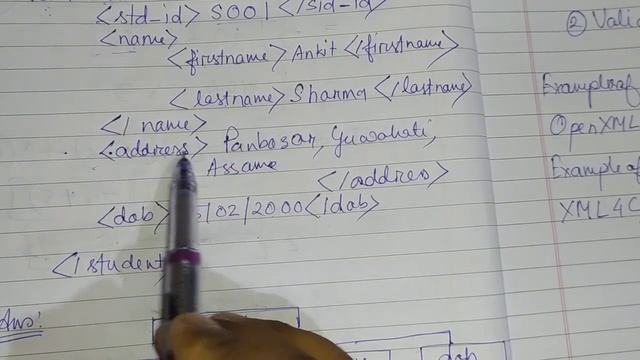 <std-id> S001 </std-id>
<name>
<firstname> Ankit </firstname>
<lastname> Sharma </lastname>
</name>
<address> Panbazar, Guwahati,
Assame
</addres>
<dab> /02/2000 </dab>
</student
Ans:
dab
② Valid
Example of
Open XML
Example of
XML4C